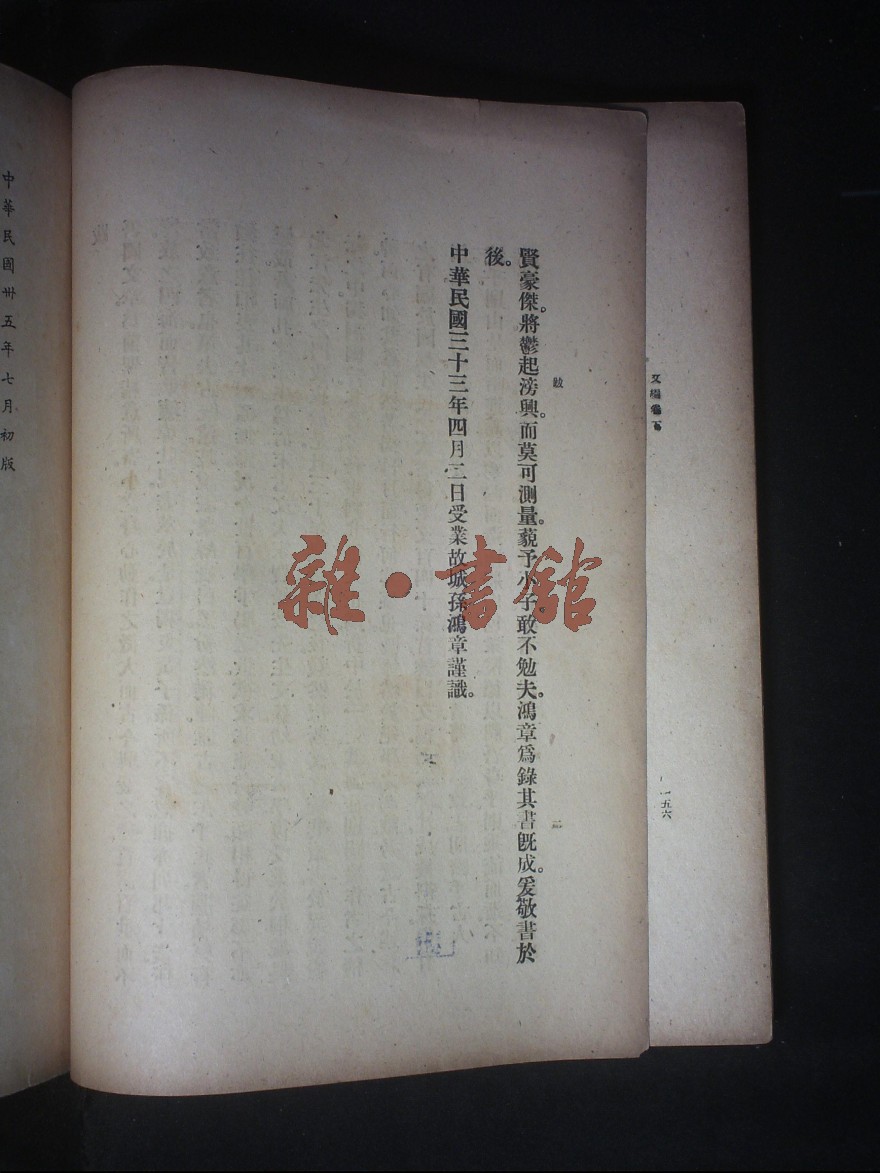 文編卷下
一五六
跋
二
賢豪傑。將鬱起滂興。而莫可測量。藐予小子。敢不勉夫。鴻章爲錄其書旣成。爰敬書於
後。
中華民國三十三年四月三日受業故城孫鴻章謹識。
中華民國卅五年七月初版
雜·書館